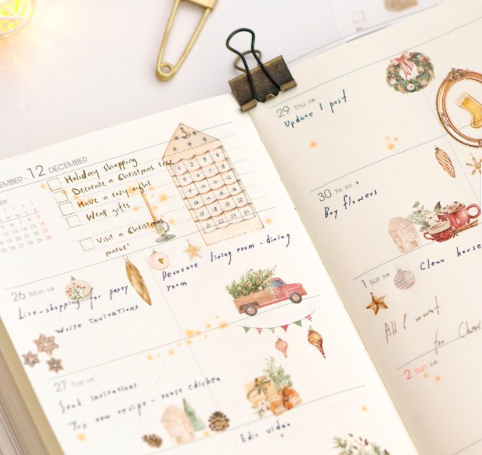 12 DECEMBER
Holiday shopping
Decorate a Christmas tree
Have a cozy night
Wrap gifts
Visit a Christmas
26 MON
List-shopping for party
Write invitations
Decorate living room - dining
room
27 TUE
Send invitations
Try new recipe - roast chicken
Edit video
29 THU
Update 1 post
30 FRI
Buy flowers
1 SAT
Clean house
All I want
for
2 SUN